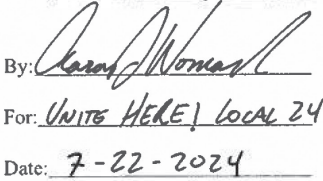 By: Aaron J Womack
For: UNITE HERE! LOCAL 24
Date: 7-22-2024